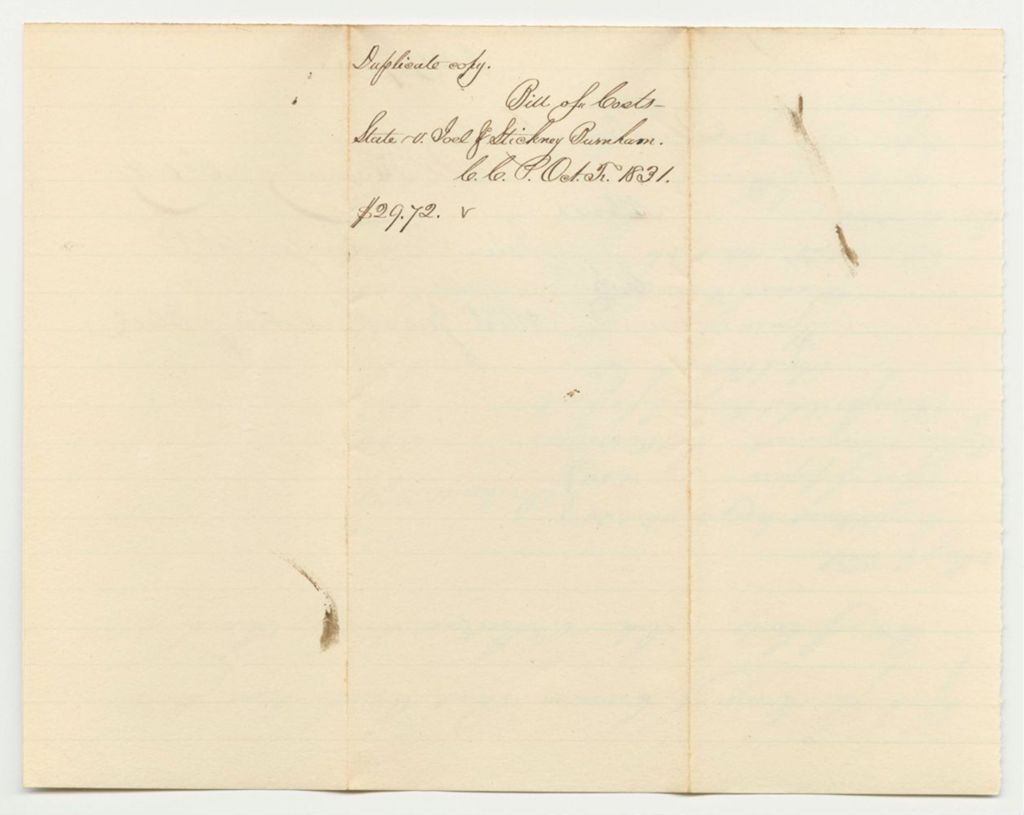 Duplicate copy.
Bill of Costs-
State v. Joel & Stickney Burnham.
C. C. P. Oct. Tr. 1831.
$29.72. v